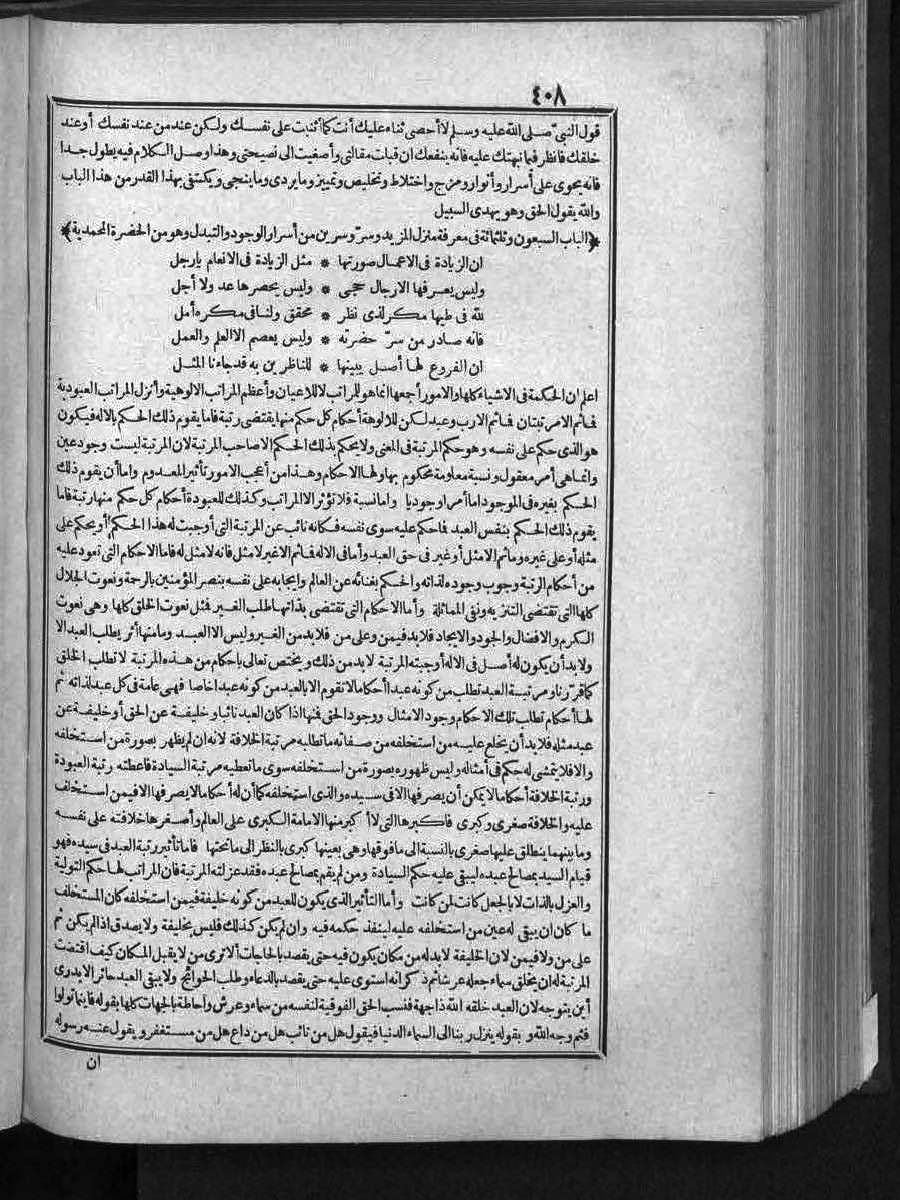 ٤٠٨
قول النبي صلى الله عليه وسلم لا أحصى ثناء عليك أنت كما أثنيت على نفسك ولكن عند من عند نفسك أو عند
خلقك فانظر فيما نبهتك عليه فانه ينفعك ان قبلت مقالتى وأصغيت الى نصيحتى وهذا وصل الكلام فيه يطول جدا
فانه يحوى على أسرار وأنوار ومزج واختلاط وتخليص وتمييز وما يردى وما ينجى ويكتفى بهذا القدر من هذا الباب
والله يقول الحق وهو يهدى السبيل
﴿الباب السبعون وثلثمائة فى معرفة منزل المزيد وسرّ وسرين من أسرار الوجود والتبدل وهو من الحضرة المحمدية﴾
ان الزيادة فى الاعمال صورتها * مثل الزيادة فى الانعام يارجل
وليس يعرفها الا رجال حجى * وليس يحصرها عد ولا أجل
لله فى طيها مكر لذى نظر * محقق ولنا فى مكره أمل
فانه صادر من سرّ حضرته * وليس يعصم الا العلم والعمل
ان الفروع لها أصل يبينها * للناظرين به قد جاءنا المثل
اعلم ان الحكمة فى الاشياء كلها والامور أجمعها انما هو للمراتب لا للاعيان وأعظم المراتب الالوهية وأنزل المراتب العبودية
فما ثم الا مرتبتان فما ثم الا رب وعبد لكن للالوهة أحكام كل حكم منها يقتضى رتبة فاما يقوم ذلك الحكم بالاله فيكون
هو الذى حكم على نفسه وهو حكم المرتبة فى المعنى ولا يحكم بذلك الحكم الا صاحب المرتبة لان المرتبة ليست وجود عين
وانما هى أمر معقول ونسبة معلومة محكوم بها ولها الاحكام وهذا من أعجب الامور تأثير المعدوم واما أن يقوم ذلك
الحكم بغيره فى الموجود اما أمرا وجوديا واما نسبة فلا تؤثر الا المراتب وكذلك للعبودة أحكام كل حكم منها رتبة فاما
يقوم ذلك الحكم بنفس العبد فما حكم عليه سوى نفسه فكانه نائب عن المرتبة التى أوجبت له هذا الحكم أو يحكم على
مثله أو على غيره وما ثم الا مثل أو غير فى حق العبد وأما فى الاله فما ثم الا غير لا مثل فانه لا مثل له فاما الاحكام التى تعود عليه
من أحكام الرتبة وجوب وجوده لذاته والحكم بغنائه عن العالم وايجابه على نفسه بنصر المؤمنين بالرحمة ونعوت الجلال
كلها التى تقتضى التنزيه ونفى المماثلة وأما الاحكام التى تقتضى بذاتها طلب الغير فمثل نعوت الخلق كلها وهى نعوت
الكرم والافضال والجود والايجاد فلا بد فيمن وعلى من فلا بد من الغير وليس الا العبد وما منها أثر يطلب العبد الا
ولا بد أن يكون له أصل فى الاله أوجبته المرتبة لا بد من ذلك ويختص تعالى باحكام من هذه المرتبة لا تطلب الخلق
كما قررنا ومرتبة العبد تطلب من كونه عبدا أحكاما لا تقوم الا بالعبد من كونه عبدا خاصا فهى عامة فى كل عبد لذاته ثم
لها أحكام تطلب تلك الاحكام وجود الامثال ووجود الحق فمنها اذا كان العبد نائبا وخليفة عن الحق أو خليفة عن
عبد مثله فلا بد أن يخلع عليه من استخلفه من صفاته ما تطلبه مرتبة الخلافة لانه ان لم يظهر بصورة من استخلفه
والا فلا يتمشى له حكم فى أمثاله وليس ظهوره بصورة من استخلفه سوى ما تعطيه مرتبة السيادة فاعطته رتبة العبودة
ورتبة الخلافة أحكاما لا يمكن أن يصرفها الا فى سيده والذى استخلفه كما أن له أحكاما لا يصرفها الا فيمن استخلف
عليه والخلافة صغرى وكبرى فاكبرها التى لا أكبر منها الامامة الكبرى على العالم وأصغرها خلافته على نفسه
وما بينهما ينطلق عليها صغرى بالنسبة الى ما فوقها وهى بعينها كبرى بالنظر الى ما تحتها فاما تأثير رتبة العبد فى سيده فهو
قيام السيد بمصالح عبده ليبقى عليه حكم السيادة ومن لم يقم بمصالح عبده فقد عزلته المرتبة فان المراتب لها حكم التولية
والعزل بالذات لا بالجعل كانت لمن كانت وأما التأثير الذى يكون للعبد من كونه خليفة فيمن استخلفه كان المستخلف
ما كان ان يبقى له عين من استخلفه عليه لينفذ حكمه فيه وان لم يكن كذلك فليس بخليفة ولا يصدق اذا لم يكن ثم
على من ولا فيمن لان الخليفة لا بد له من مكان يكون فيه حتى يقصد بالحاجات ألا ترى من لا يقبل المكان كيف اقتضت
المرتبة له ان يخلق سماء جعله عرشا ثم ذكر انه استوى عليه حتى يقصد بالدعاء وطلب الحوائج ولا يبقى العبد حائرا لا يدرى
أين يتوجه لان العبد خلقه الله ذا جهة فنسب الحق الفوقية لنفسه من سماء وعرش واحاطة بالجهات كلها بقوله فاينما تولوا
فثم وجه الله و بقوله ينزل ربنا الى السماء الدنيا فيقول هل من تائب هل من داع هل من مستغفر ويقول عنه رسوله
ان